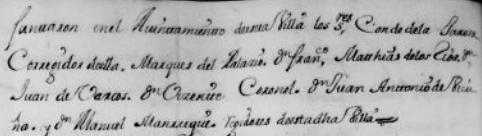 Juntaron en el Aiuntamiento desta Villa los S.res Conde de la
Corregidor della. Marques del Palacio. Dn Franco. Matthias de los Rios. Dn
Juan de Barcos. Dn Vizente Coronel. Dn Juan Antonio de
ña. y Dn Manuel Manrrique. Rexidores desta dha Villa